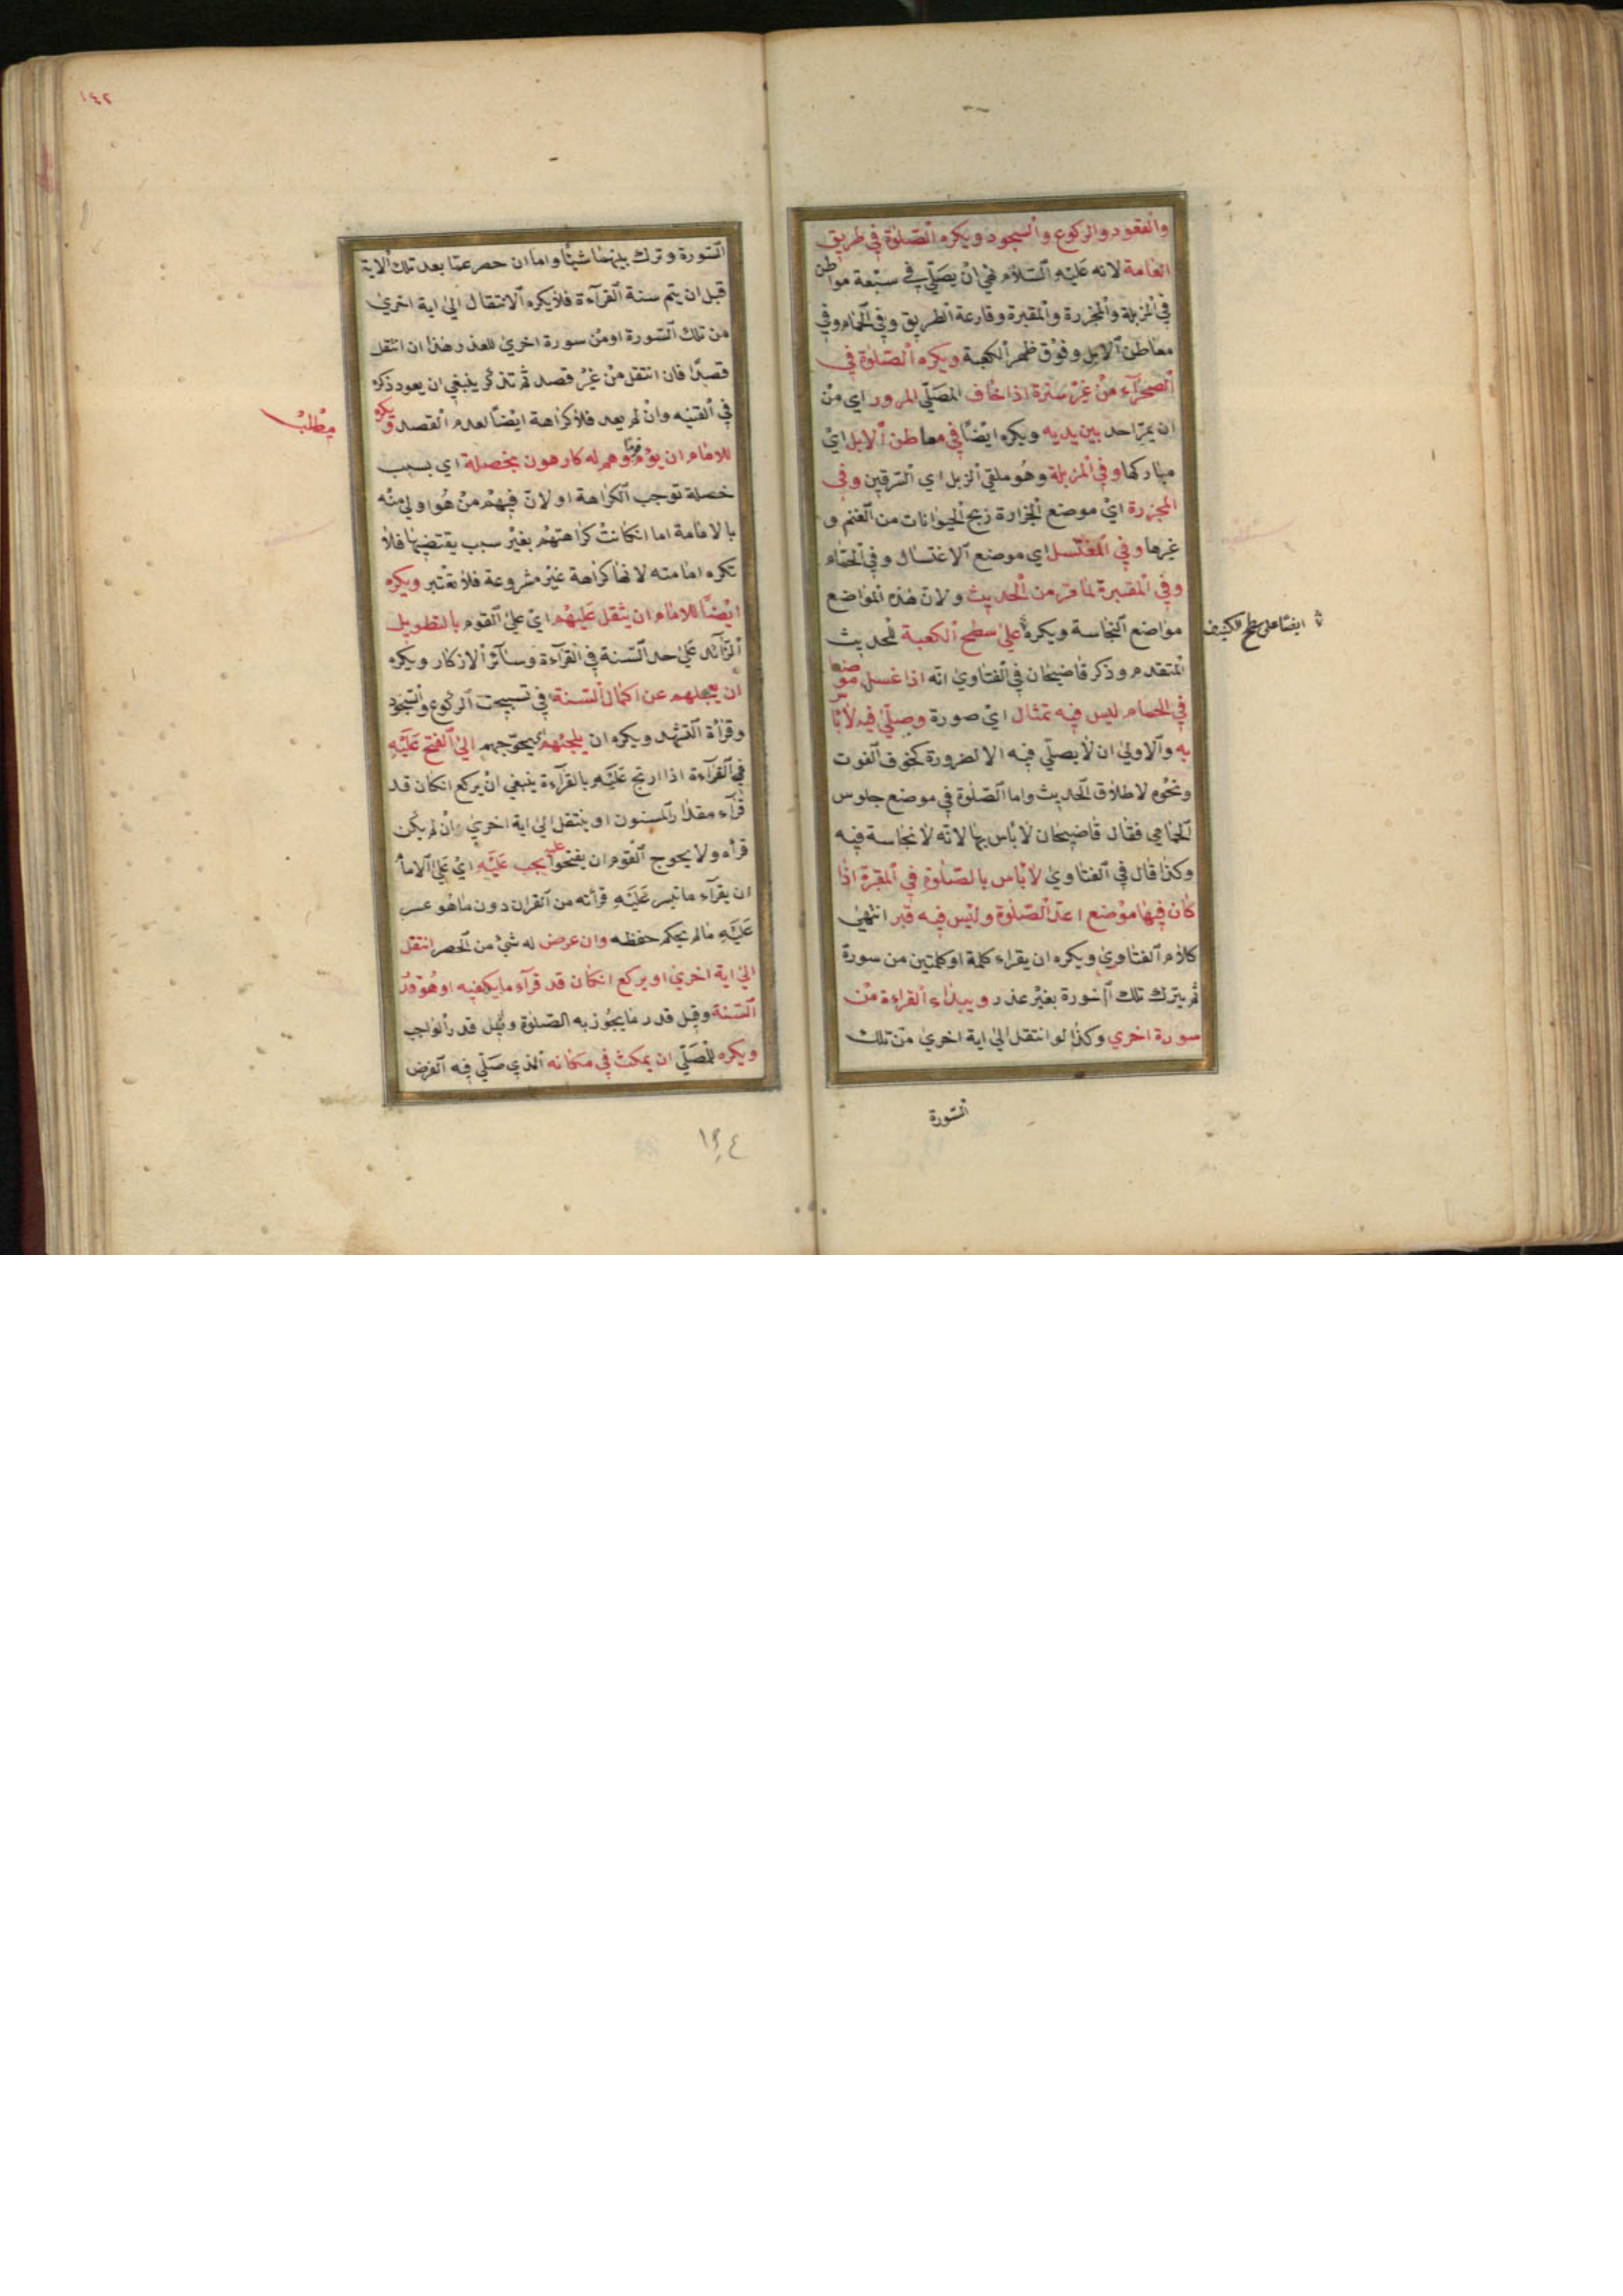 والقعود والركوع والسجود ويكره الصلوة في طريق
العامة لانه عليه السلام نهى ان يصلي في سبعة مواطن
في المزبلة والمجزرة والمقبرة وقارعة الطريق وفي الحمام وفي
معاطن الابل وفوق ظهر الكعبة ويكره الصلوة في
الصحرآء من غير سترة اذا خاف المصلي المرور اي من
ان يمر احد بين يديه ويكره ايضا في معاطن الابل اي
مباركها وفي المزبلة وهو ملقي الزبل اي السرقين وفي
المجزرة اي موضع الجزارة ذبح الحيوانات من الغنم و
غيرها وفي المغتسل اي موضع الاغتسال وفي الحمام
وفي المقبرة لما مر من الحديث ولان هذه المواضع
مواضع النجاسة ويكره على سطح الكعبة للحديث
ايضا على سطح الكنيف
المتقدم وذكر قاضيخان في الفتاوي انه اذا غسل موضعا
في الحمام ليس فيه تمثال اي صورة وصلي فيه لا بأس
به والاولي ان لا يصلي فيه الا لضرورة كخوف الفوت
ونحوه لاطلاق الحديث واما الصلوة في موضع جلوس
الحمامي فقال قاضيخان لا باس بها لانه لا نجاسة فيه
وكذا قال في الفتاوي لا باس بالصلوة في المقبرة اذا
كان فيها موضع اعد للصلوة وليس فيه قبر انتهى
كلام الفتاوي ويكره ان يقراء كلمة او كلمتين من سورة
ثم يترك تلك السورة بغير عذر ويبداء القراءة من
سورة اخري وكذا لو انتقل الي اية اخري من تلك
السورة
١٤٢
السورة وترك بينهما شيئا واما ان حصر عما بعد تلك الاية
قبل ان يتم سنة القرآءة فلا يكره الانتقال الي اية اخري
من تلك السورة او من سورة اخري للعذر هذا ان انتقل
قصدا فان انتقل من غير قصد ثم تذكر ينبغي ان يعود ذكره
في القنيه وان لم يعد فلا كراهة ايضا لعدم القصد ويكره
مطلب
للامام ان يؤم قوما وهم له كارهون بخصلة اي بسبب
خصلة توجب الكراهة او لان فيهم من هو اولي منه
بالامامة اما انكانت كراهتهم بغير سبب يقتضيها فلا
تكره امامته لانها كراهة غير مشروعة فلا تعتبر ويكره
ايضا للامام ان يثقل عليهم اي علي القوم بالتطويل
الزائد علي حد السنة في القرآءة وسآئر الاذكار ويكره
ان يعجلهم عن اكمال السنة في تسبيحت الركوع والسجود
وقرأة التشهد ويكره ان يلجئهم اي يحوجهم الي الفتح عليه
في القرآءة اذا ارتج عليه بالقرآءة ينبغي ان يركع انكان قد
قرآء مقدار المسنون او ينتقل الي اية اخري وان لم يكن
قرأه ولا يحوج القوم ان يفتحوا عليه يجب عليه اي علي الامام
ان يقرآء ما تيسر عليه قرأته من القران دون ما هو عسر
عليه ما لم يحكم حفظه وان عرض له شئ من الحصر انتقل
الي اية اخري او يركع انكان قد قرآء ما يكفيه او هو قدر
السنة وقيل قدر ما يجوز به الصلوة وقيل قدر الواجب
ويكره للمصلي ان يمكث في مكانه الذي صلي فيه الفرض
١٩٤